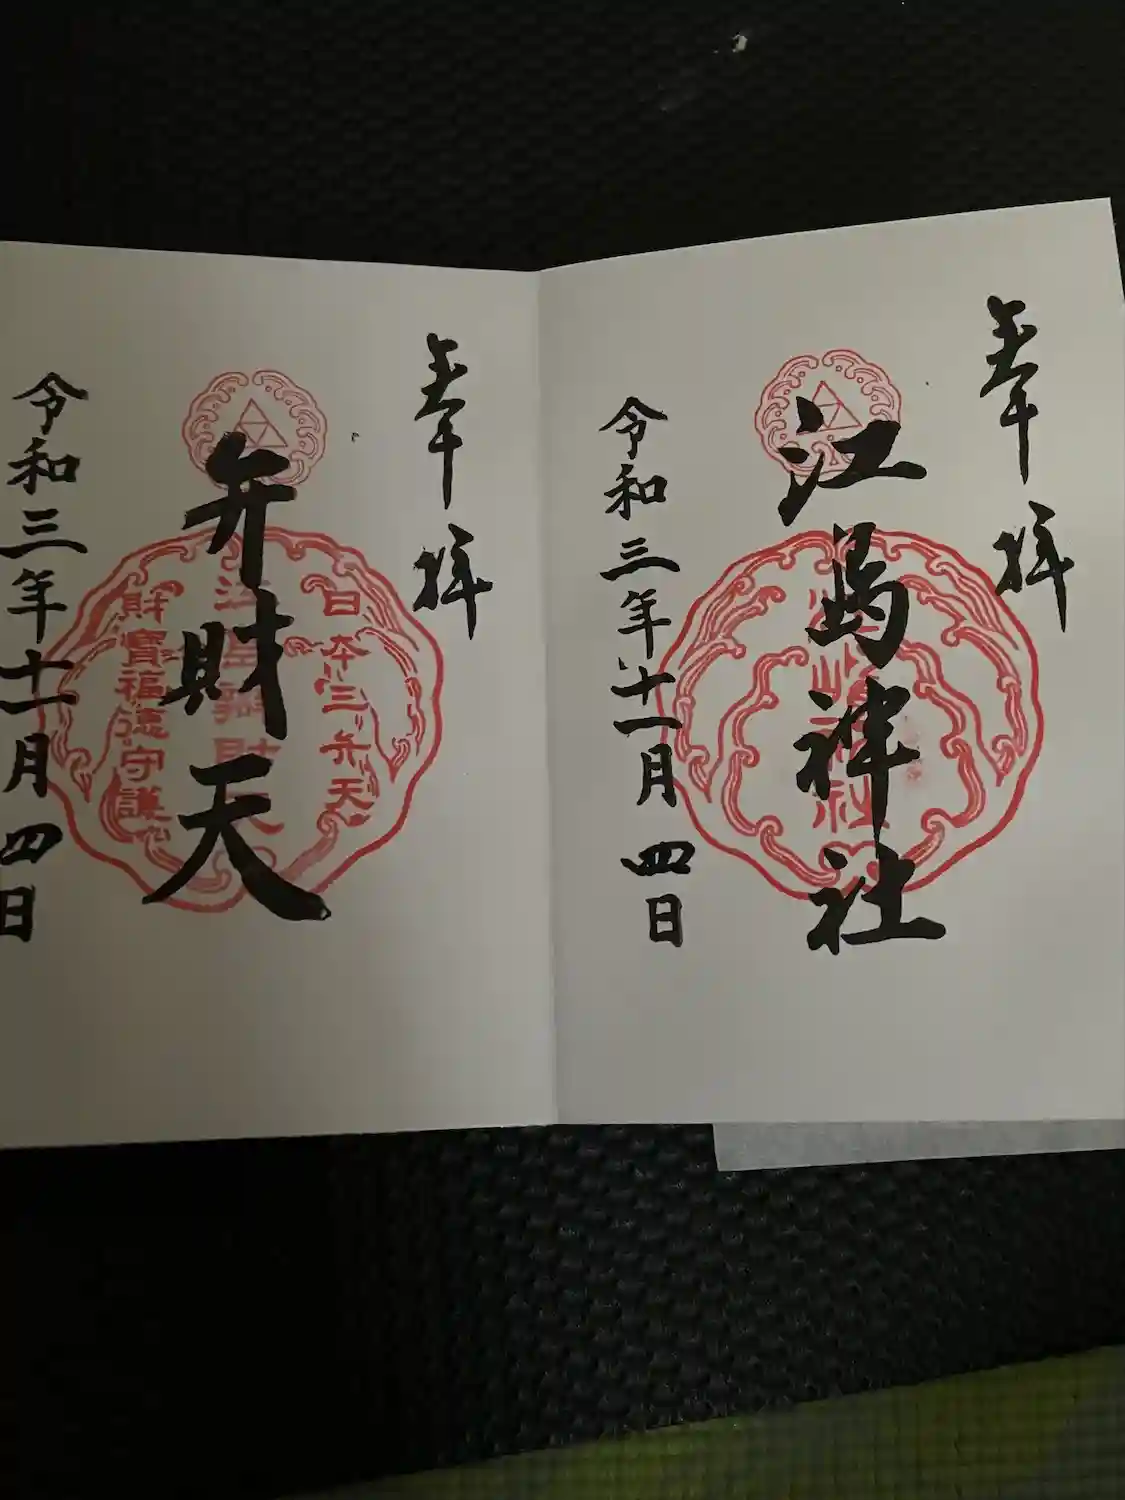 奉拝
江島神社
令和三年十一月四日
奉拝
日本三弁天
弁財天
財寶福徳守護
令和三年十一月四日